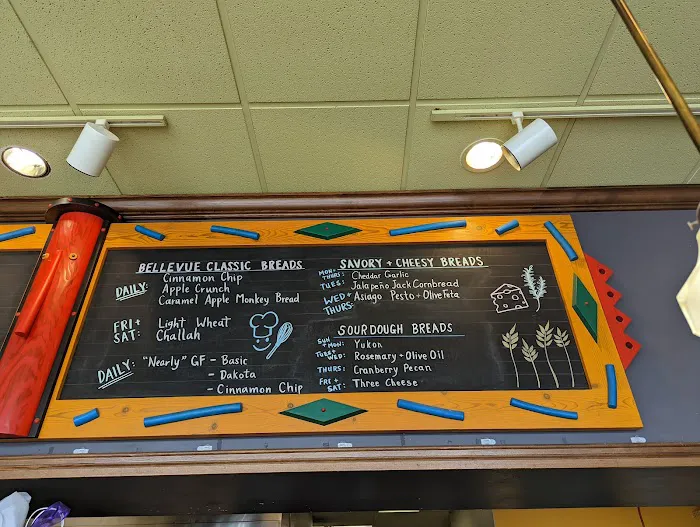 BELLEVUE CLASSIC BREADS
DAILY: Cinnamon Chip
Apple Crunch
Caramel Apple Monkey Bread
FRI + SAT: Light Wheat
Challah
DAILY: "Nearly" GF - Basic
- Dakota
- Cinnamon Chip
SAVORY + CHEESY BREADS
MON + THURS: Cheddar Garlic
TUES: Jalapeño Jack Cornbread
WED + THURS: Asiago Pesto + Olive Feta
SOURDOUGH BREADS
SUN + MON: Yukon
TUES + WED: Rosemary + Olive Oil
THURS: Cranberry Pecan
FRI + SAT: Three Cheese